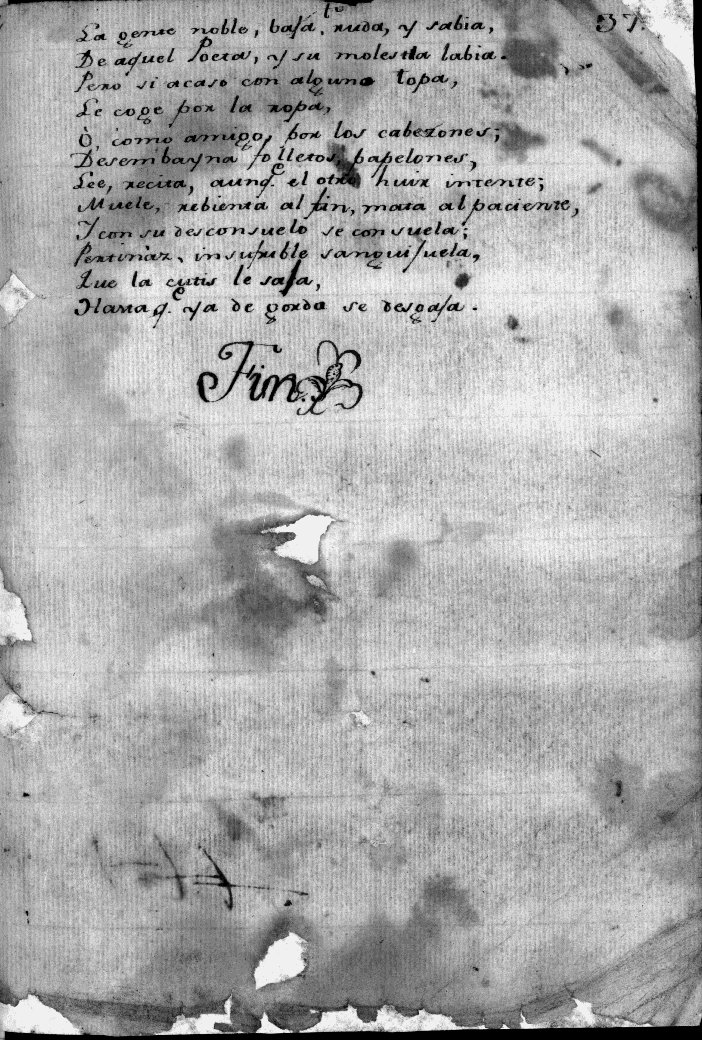 37.
La gente noble, baja, ruda, y sabia,
De aquel Poeta, y su molesta labia.
Pero si acaso con alguno topa,
Le coge por la ropa,
Ò, como amigo, por los cabezones;
Desembayna folletos, papelones,
Lee, recita, aunq.e el otro huir intente;
Muele, rebienta al fin, mata al paciente,
Y con su desconsuelo se consuela;
Pertinàz, insufrible sanguijuela,
Que la cutis le saja,
Hasta q.e ya de gorda se desgaja.
Fin.